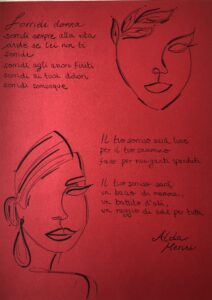 Sorridi donna
sorridi sempre alla vita
anche se lei non ti
sorride
sorridi agli amori finiti
sorridi ai tuoi dolori
sorridi comunque
Il tuo sorriso sarà luce
per il tuo cammino
faro per naviganti sperduti
Il tuo sorriso sarà
un bacio di mamma
un battito d'ali
un raggio di sole per tutti
Alda
Merini